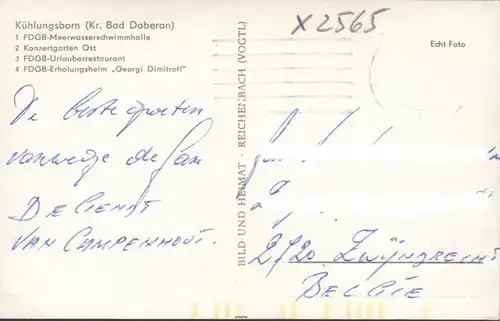 Kühlungsborn (Kr. Bad Doberan)
1 FDGB-Meerwasserschwimmhalle
2 Konzertgarten Ost
3 FDGB-Urlauberrestaurant
4 FDGB-Erholungsheim „Georgi Dimitroff"
X2565
Echt Foto
De beste groeten
vanwege de fam
DE CLENDT
VAN CAMPENHOUT.
BILD UND HEIMAT · REICHENBACH (VOGTL)
2720 Zwijndrecht
BELGIE